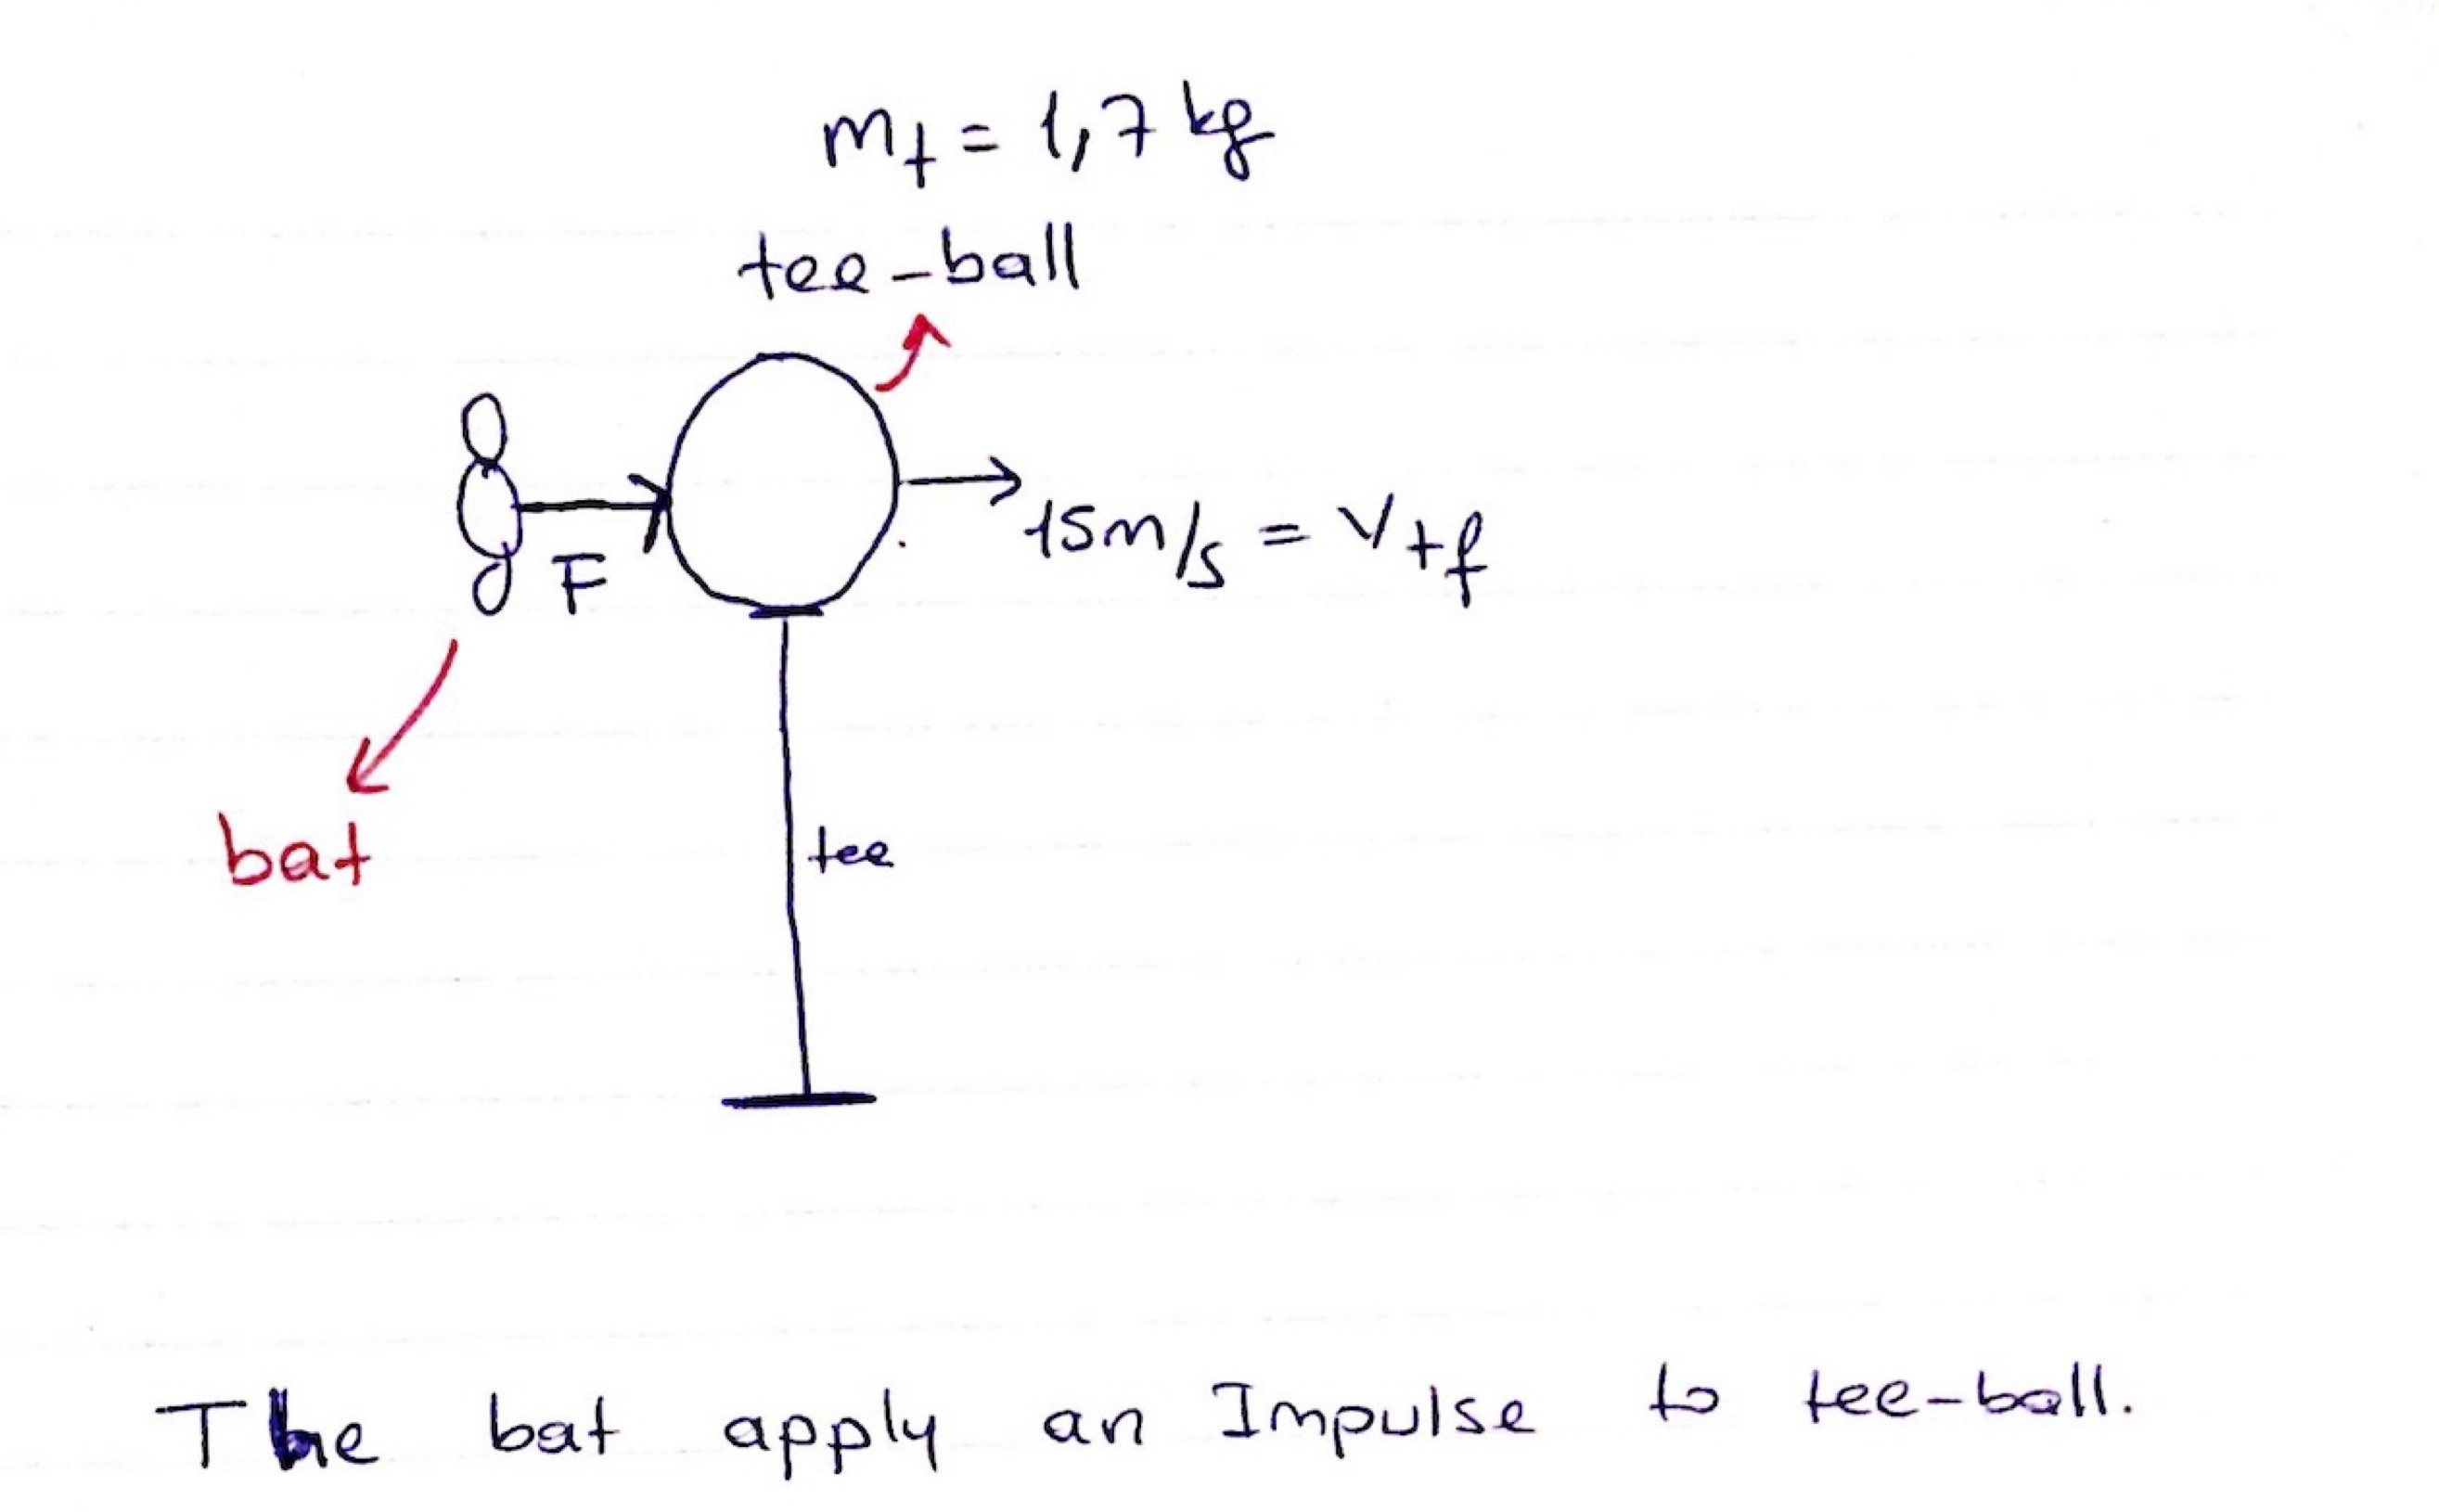 m_t = 1,7 kg
tee-ball
F
15m/s = v_tf
bat
tee
The bat apply an Impulse to tee-ball.